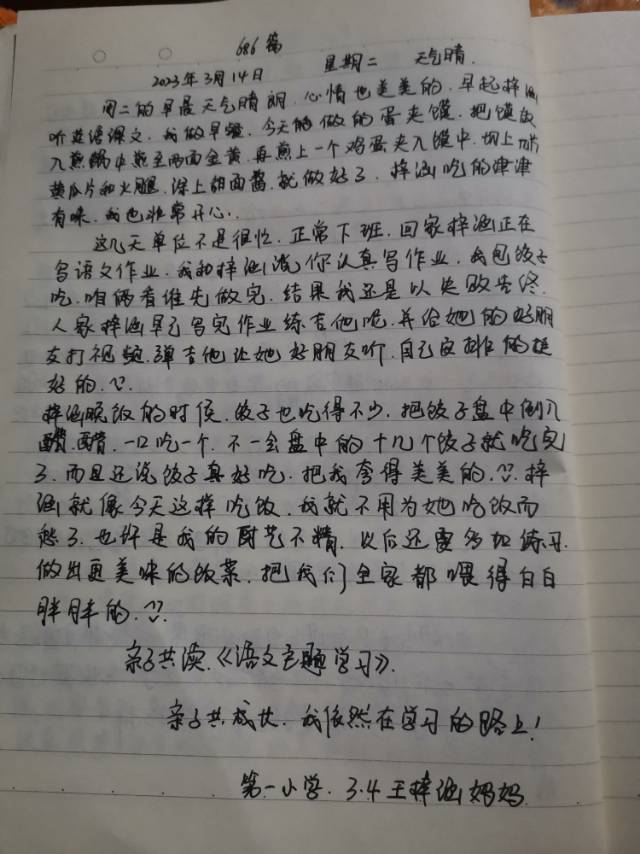 686篇
2023年3月14日 星期二 天气晴.
周二的早晨天气晴朗.心情也美美的.早起梓涵
听英语课文.我做早餐.今天的做的蛋夹馍.把馍放
入煎锅中煎至两面金黄.再煎上一个鸡蛋夹入馍中.切上几片
黄瓜片和火腿.涂上甜面酱.就做好了.梓涵吃的津津
有味.我也非常开心.
这几天单位不是很忙.正常下班.回家梓涵正在
写语文作业.我和梓涵说你认真写作业.我包饺子
吃.咱俩看谁先做完.结果我还是以失败告终.
人家梓涵早已写完作业练吉他呢.并给她的好朋
友打视频.弹吉他让她好朋友听.自己安排的挺
好的.
梓涵晚饭的时候.饺子也吃得不少.把饺子盘中倒入
醋.一口吃一个.不一会盘中的十几个饺子就吃完
了.而且还说饺子真好吃.把我夸得美美的.梓
涵就像今天这样吃饭.我就不用为她吃饭而
愁了.也许是我的厨艺不精.以后还要多加练习.
做出更美味的饭菜.把我们全家都喂得白白
胖胖的.
亲子共读.《语文主题学习》.
亲子共成长.我依然在学习的路上!
第一小学.3.4王梓涵妈妈.